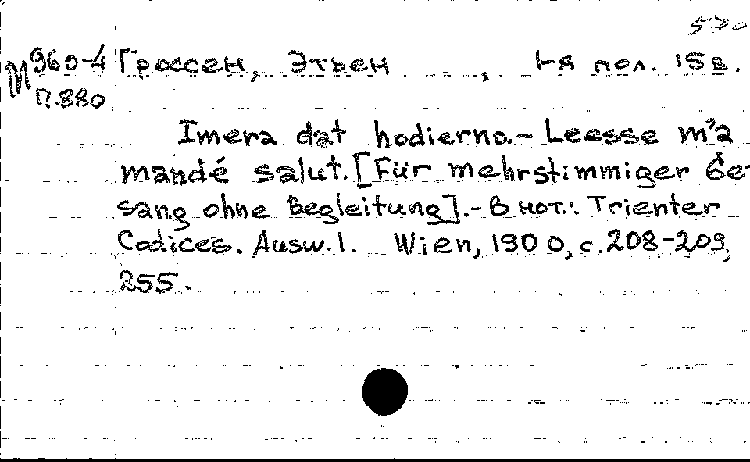 570
М960-4 Гроссен, Этьен , 1-я пол. 15в.
П.880
Imera dat hodierno.- Leesse m'a
mandé salut. [Für mehrstimmiger Ge-
sang ohne Begleitung].- В нот.: Trienter
Codices. Ausw. 1. Wien, 1900, с. 208-209,
255.